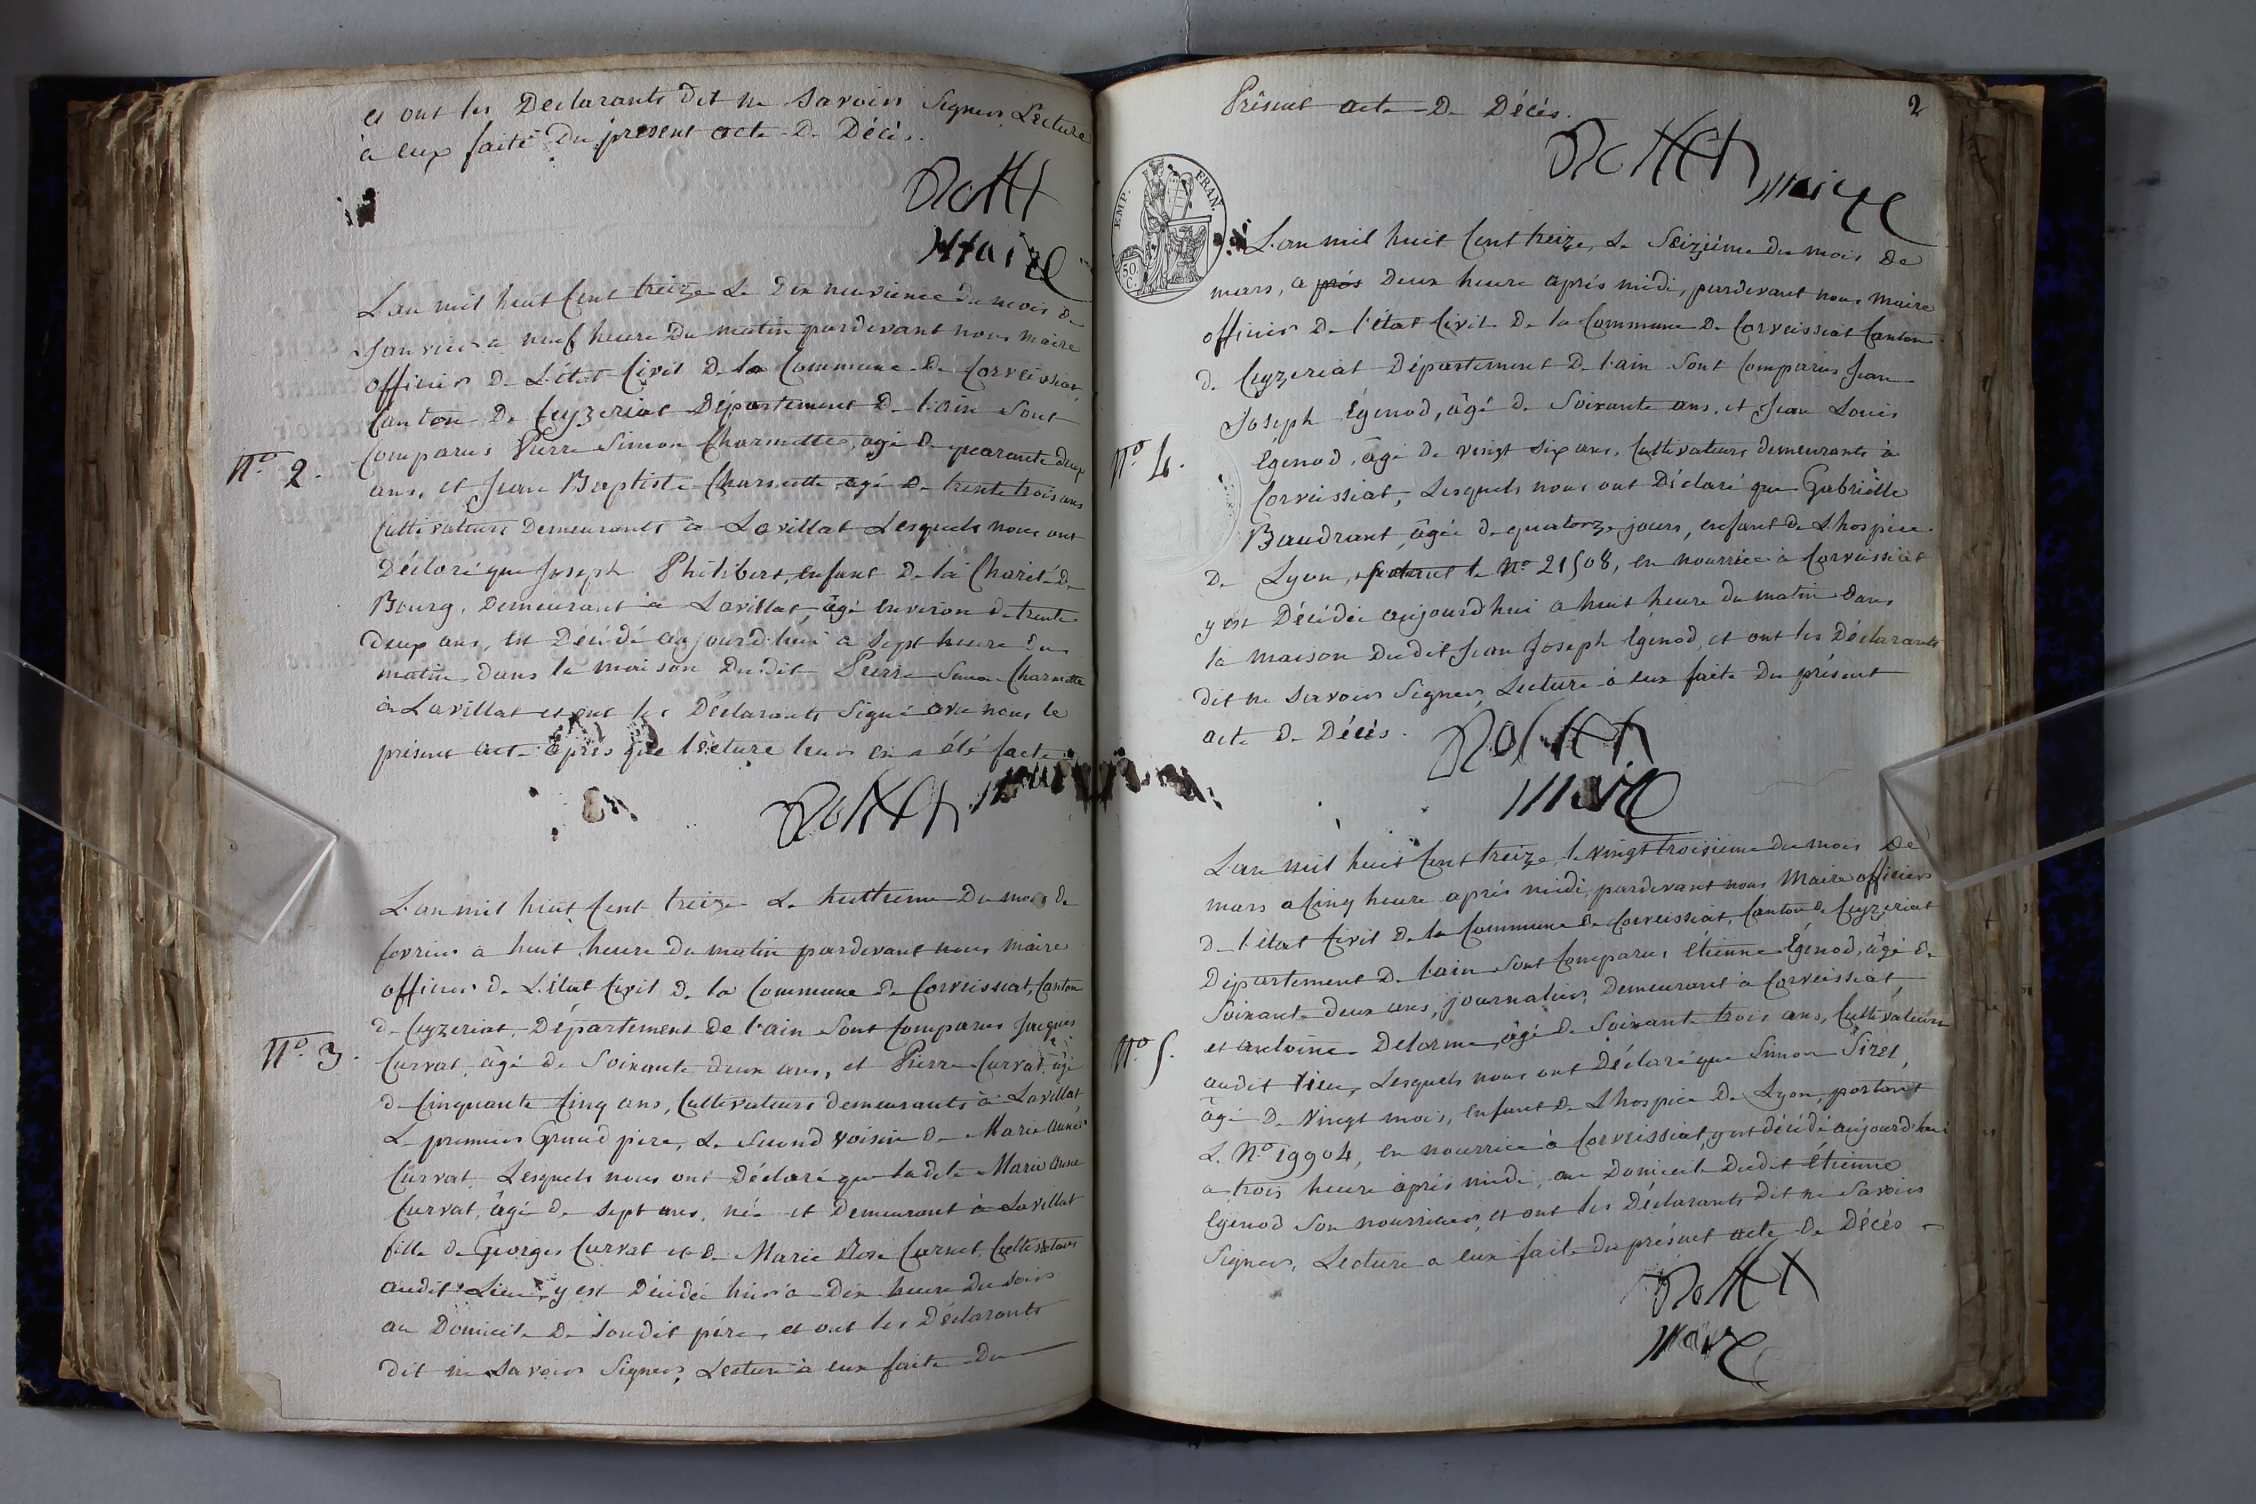 et ont les Declarants dit ne savoir signer, Lecture
à eux faite Du présent acte De Décès.
maire
L'an mil huit Cent treize Le Dix neuvieme du mois de
Janvier a neuf heure Du matin pardevant nous maire
officier De L'état Civil De la Commune De Corveissiat,
Canton De Ceyzeriat Département De l'ain Sont
Comparus Pierre Simon Charmette, agé De quarante deux
N.o 2.
ans, et Jean Baptiste Charmette agé De trente trois ans
Cultivateurs Demeurants à Lavillat Lesquels nous ont
Déclaré que Joseph Philibert, enfant De la Charité De
Bourg, Demeurant à Lavillat âgé environ de trente
deux ans, est Décédé aujourd'hui a sept heure du
matin dans la maison Dudit Pierre Simon Charmette
à Lavillat et ont les Déclarants Signé avec nous le
présent acte après que lecture leur en a été faite
L'an mil huit Cent treize Le huitieme Du mois de
fevrier a huit heure du matin pardevant nous maire
officier de L'état Civil De la Commune de Corveissiat, Canton
de Ceyzeriat, Département de l'ain Sont Comparus Jacques
N.o 3.
Curvat, âgé de Soixante deux ans, et Pierre Curvat, âgé
de Cinquante Cinq ans, Cultivateurs demeurants à Lavillat,
Le premier Grand pere, Le Second voisin De Marie Anne
Curvat, Lesquels nous ont Déclaré que ladite Marie Anne
Curvat, âgé de sept ans, née et Demeurant à Lavillat
fille de Georges Curvat et de Marie Rose Curnet, Cultivateurs
audit Lieu, y est Décédée hier à Dix heure Du soir
au Domicile De Sondit père, et ont les Déclarants
dit ne savoir Signer, Lecture à eux faite Du
2
Présent acte De Décès.
maire
EMP. FRAN.
50. C.
L'an mil huit Cent treize, Le Seizième du mois De
mars, a près Deux heure après midi, pardevant nous maire
officier De l'état Civil De la Commune De Corveissiat Canton
de Ceyzeriat Département De l'ain Sont Comparus Jean
Joseph Égenod, âgé de Soixante ans, et Jean Louis
N.o 4.
Égenod, âgé de vingt six ans, Cultivateurs demeurants à
Corveissiat, Lesquels nous ont Déclaré que Gabrielle
Baudrant, âgée de quatorze jours, enfant De L'hospice
De Lyon, portant le N.o 21508, en nourrice à Corveissiat
y est Décédée aujourd'hui a huit heure du matin dans
la maison Dudit Jean Joseph Egenod, et ont les Déclarants
dit ne savoir Signer, Lecture à eux faite Du présent
acte De Décès.
maire
L'an mil huit Cent treize, le vingt troisieme du mois De
mars a Cinq heure après midi, pardevant nous Maire officier
De l'état Civil De la Commune De Corveissiat, Canton de Ceyzeriat
Département De l'ain Sont Comparus Etienne Égenod, âgé de
Soixante deux ans, journalier, Demeurant à Corveissiat,
N.o 5.
et antoine Delorme, âgé De Soixante trois ans, Cultivateur
audit lieu, Lesquels nous ont Déclaré que Simon Sizel,
âgé De Vingt mois, enfant De L'hospice De Lyon, portant
L. N.o 19904, en nourrice à Corveissiat, y est décédé aujourd'hui
a trois heure après midi, au Domicil Dudit Etienne
Egenod Son nourricier, et ont les Déclarants dit ne Savoir
Signer, Lecture a eux faite du présent acte De Décès
maire